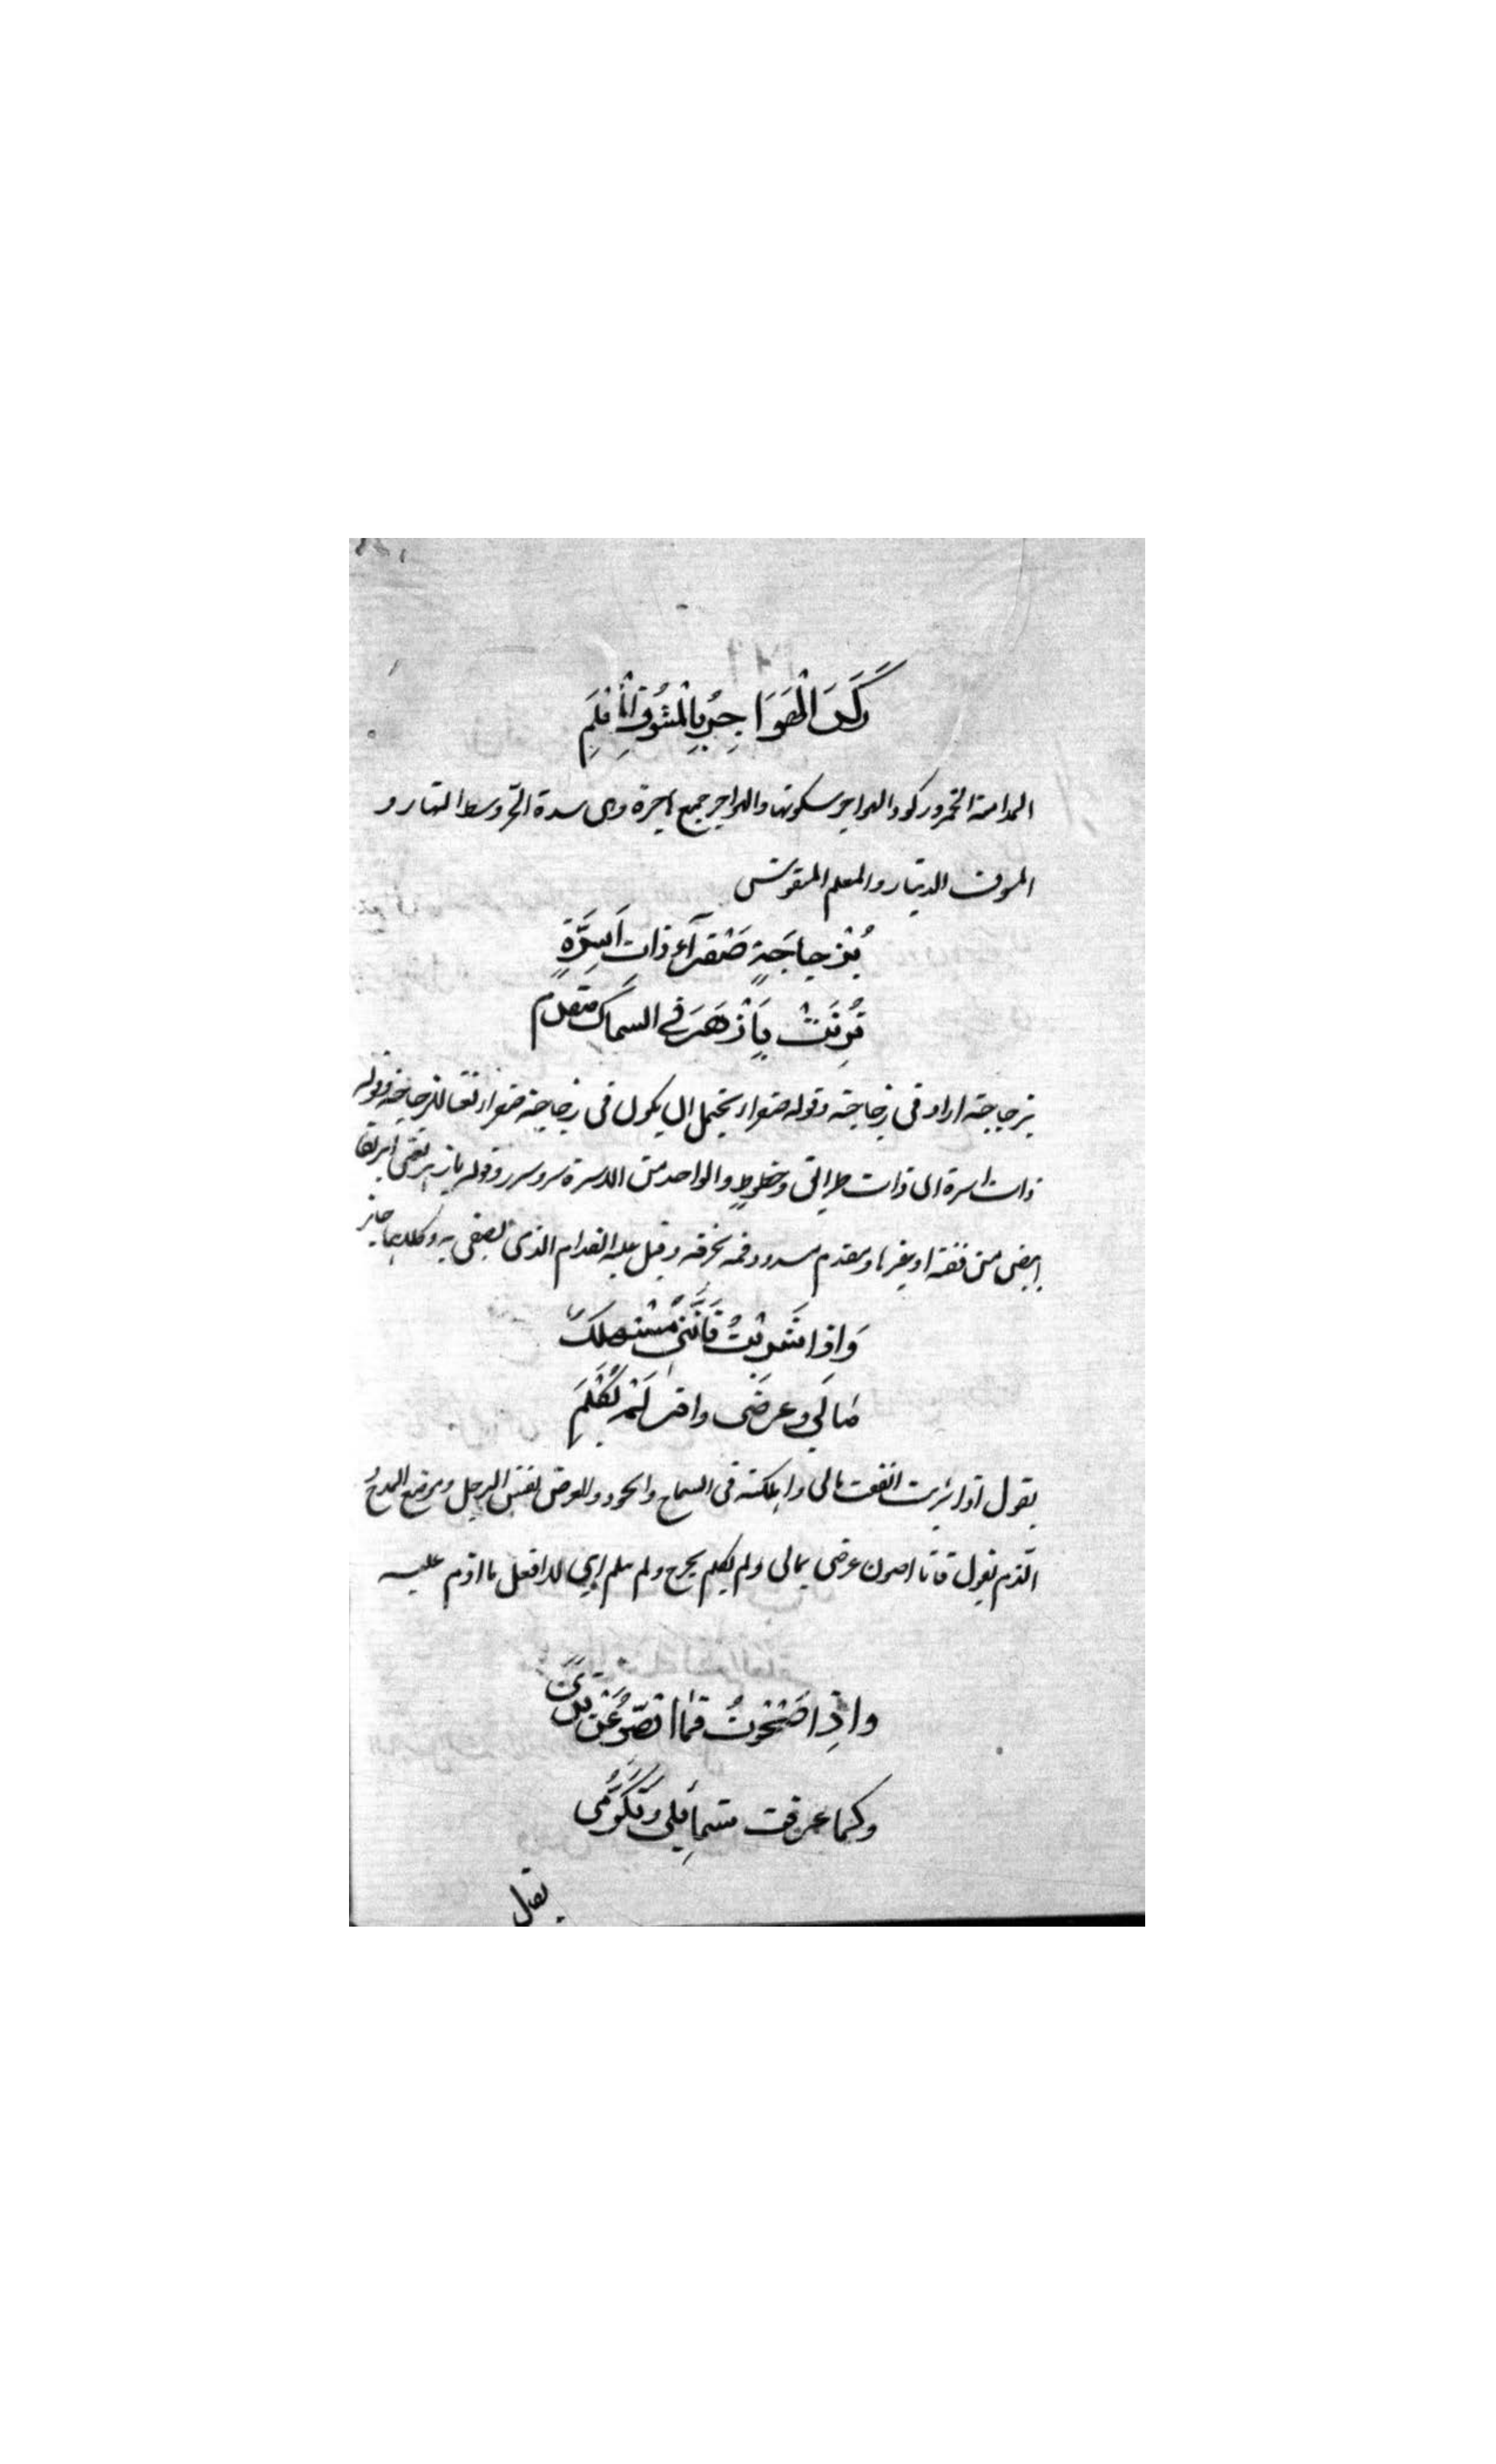 رَكَدَ الْهَوَاجِرُ بِالْمَشُوفِ الْمُعْلَمِ
المدامة الخمر وركود الهواجر سكونها والهواجر جمع هاجرة وهى شدة الحّر وسط النهار و
المشوف الدينار والمعلم المنقوش
بُزْجاجَةٍ صَفْرَآءِ ذاتِ اَسِرَّةٍ
قُرِنَتْ بِاَزْهَرَ فِي السماك مقدم
بزجاجة اراد فى زجاجة وقوله صفراء يحتمل ان يكون فى زجاجة صفراء نعتا لزجاجة وقوله
ذات اسرة اى ذات طرائق وخطوطٍ والواحد من الاسرة سر وسرر وقوله بازهر يعنى ابريقا
ابيض من فضة او غيرها ومقدم مسدود فمه بخرقه وقيل عليه الفدام الذى يصفى به وكلاهما جائز
وَاِذا شَرِبْتُ فَاِنَّنى مُسْتهلكٌ
مٰالي وعرضى وافر لَمْ يُكْلَمِ
يقول اذا شربت انفقت مالى واهلكته فى السماح والجود والعرض نفس الرجل وموضع المدح و
الذم يقول فانا اصون عرضى بمالى ولم يكلم يجرح ولم يثلم اى لا افعل ما اذم عليه
واِذا صَحْوتُ فمٰا اُقصّرُ عَنْ نَدًى
وكما عرفت شمائِلى وَتَكَرُّمى
يقال